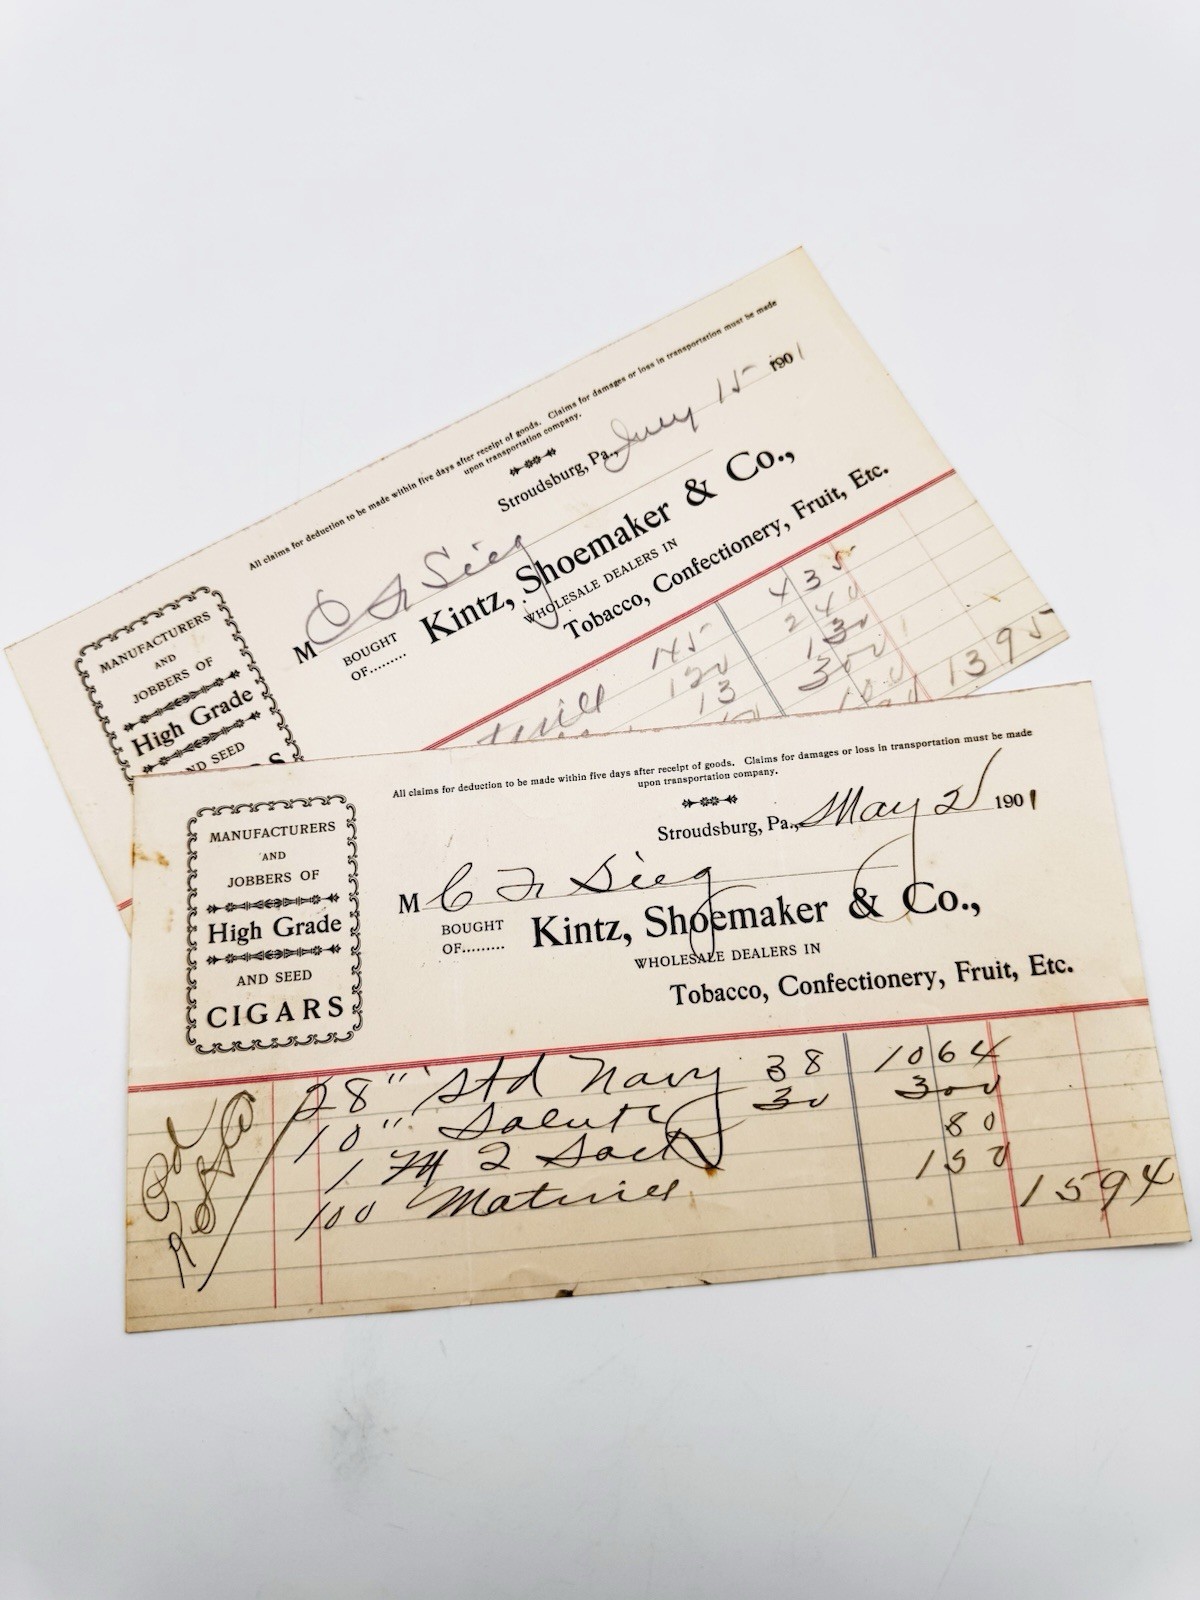 All claims for deduction to be made within five days after receipt of goods. Claims for damages or loss in transportation must be made
upon transportation company.
Stroudsburg, Pa., July 15 1901
M C F Sieg
BOUGHT
OF.........
Kintz, Shoemaker & Co.,
WHOLESALE DEALERS IN
Tobacco, Confectionery, Fruit, Etc.
MANUFACTURERS
AND
JOBBERS OF
High Grade
AND SEED
145 4 35
120 2 40
13 1 30
3 00
1395
All claims for deduction to be made within five days after receipt of goods. Claims for damages or loss in transportation must be made
upon transportation company.
Stroudsburg, Pa., May 2 1901
M C F Sieg
BOUGHT
OF.........
Kintz, Shoemaker & Co.,
WHOLESALE DEALERS IN
Tobacco, Confectionery, Fruit, Etc.
MANUFACTURERS
AND
JOBBERS OF
High Grade
AND SEED
CIGARS
Pd
28 " Std Navy 38 1064
10 " Salute 30 300
1 2 80
100 150
1594